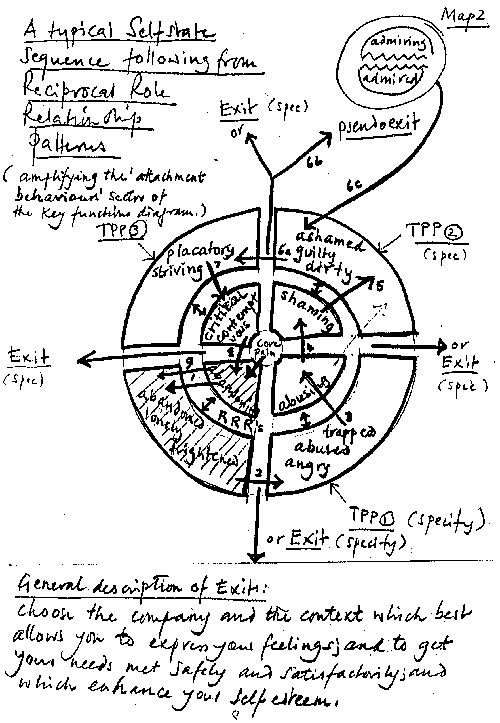 Map 2
A typical Selfstate
Sequence following from
Reciprocal Role
Relationship
Patterns
(amplifying the 'attachment
behaviours' sector of
the key functions diagram.)
admiring
admired
Exit (spec)
or
pseudoexit
6b
6c
TPP③
TPP②
(spec)
placatory
striving
6a
ashamed
guilty
dirty
critical
contemptuous
shaming
5
7
8
4
Core
pain
Exit
(spec)
or
Exit
(spec)
9
1
abandoning
abusing
abandoned
lonely
frightened
RRR's
3
trapped
abused
angry
2
TPP① (specify)
or Exit (specify)
General description of Exit:
Choose the company and the context which best
allows you to express your feelings; and to get
your needs met safely and satisfactorily; and
which enhance your self esteem.